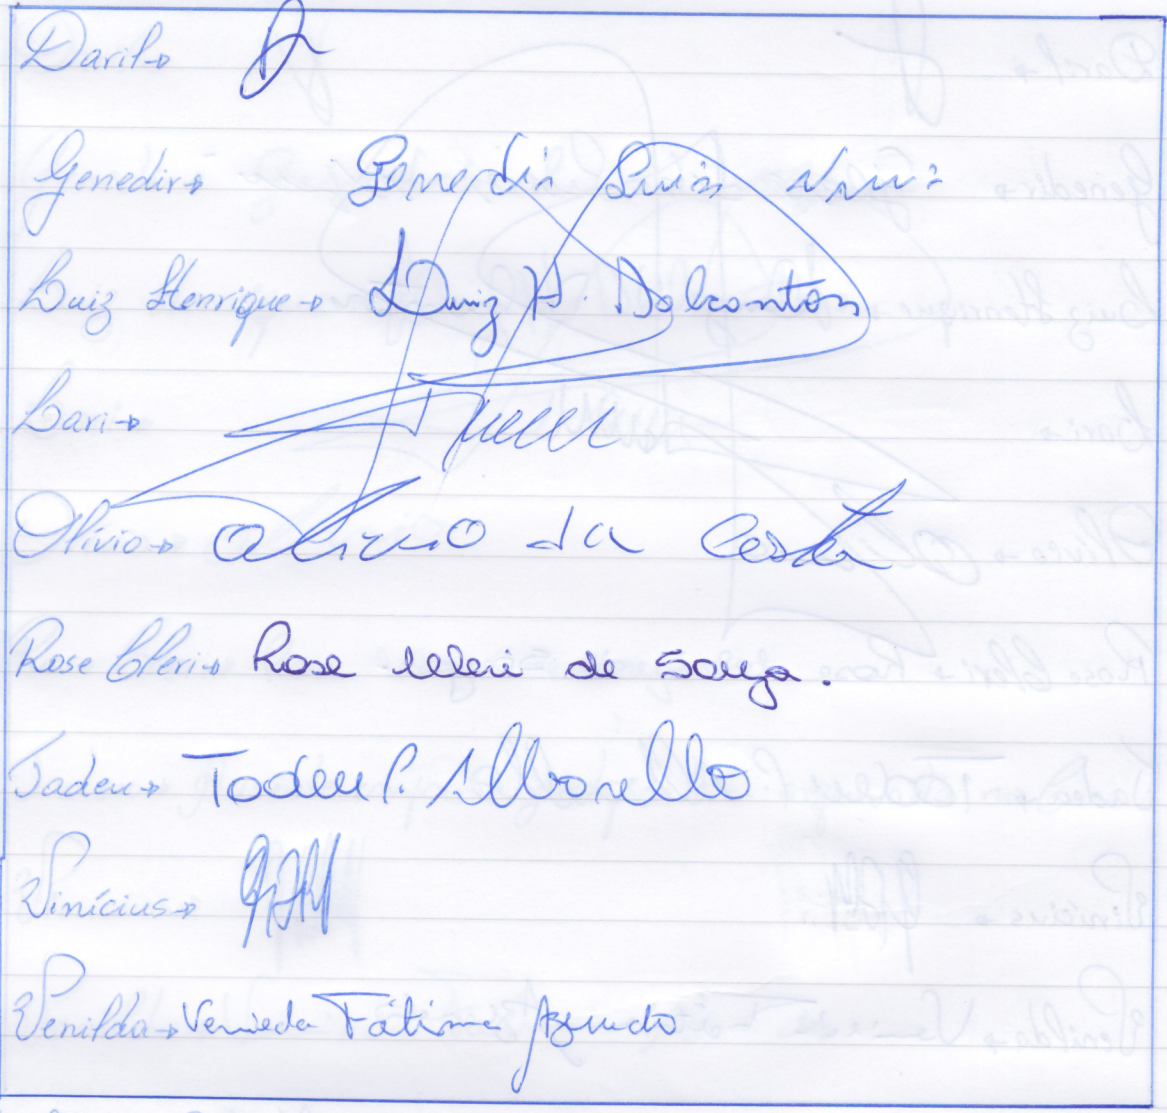 Daril→
Genedir→ Genedir Luis
Luiz Henrique→ Luiz H. Dalcanton
Lari→
Olívio→ Olivio da Costa
Rose Cleri→ Rose Cleri de Souza.
Tadeu→ Tadeu P. Albarello
Vinícius→
Venilda→ Fátima